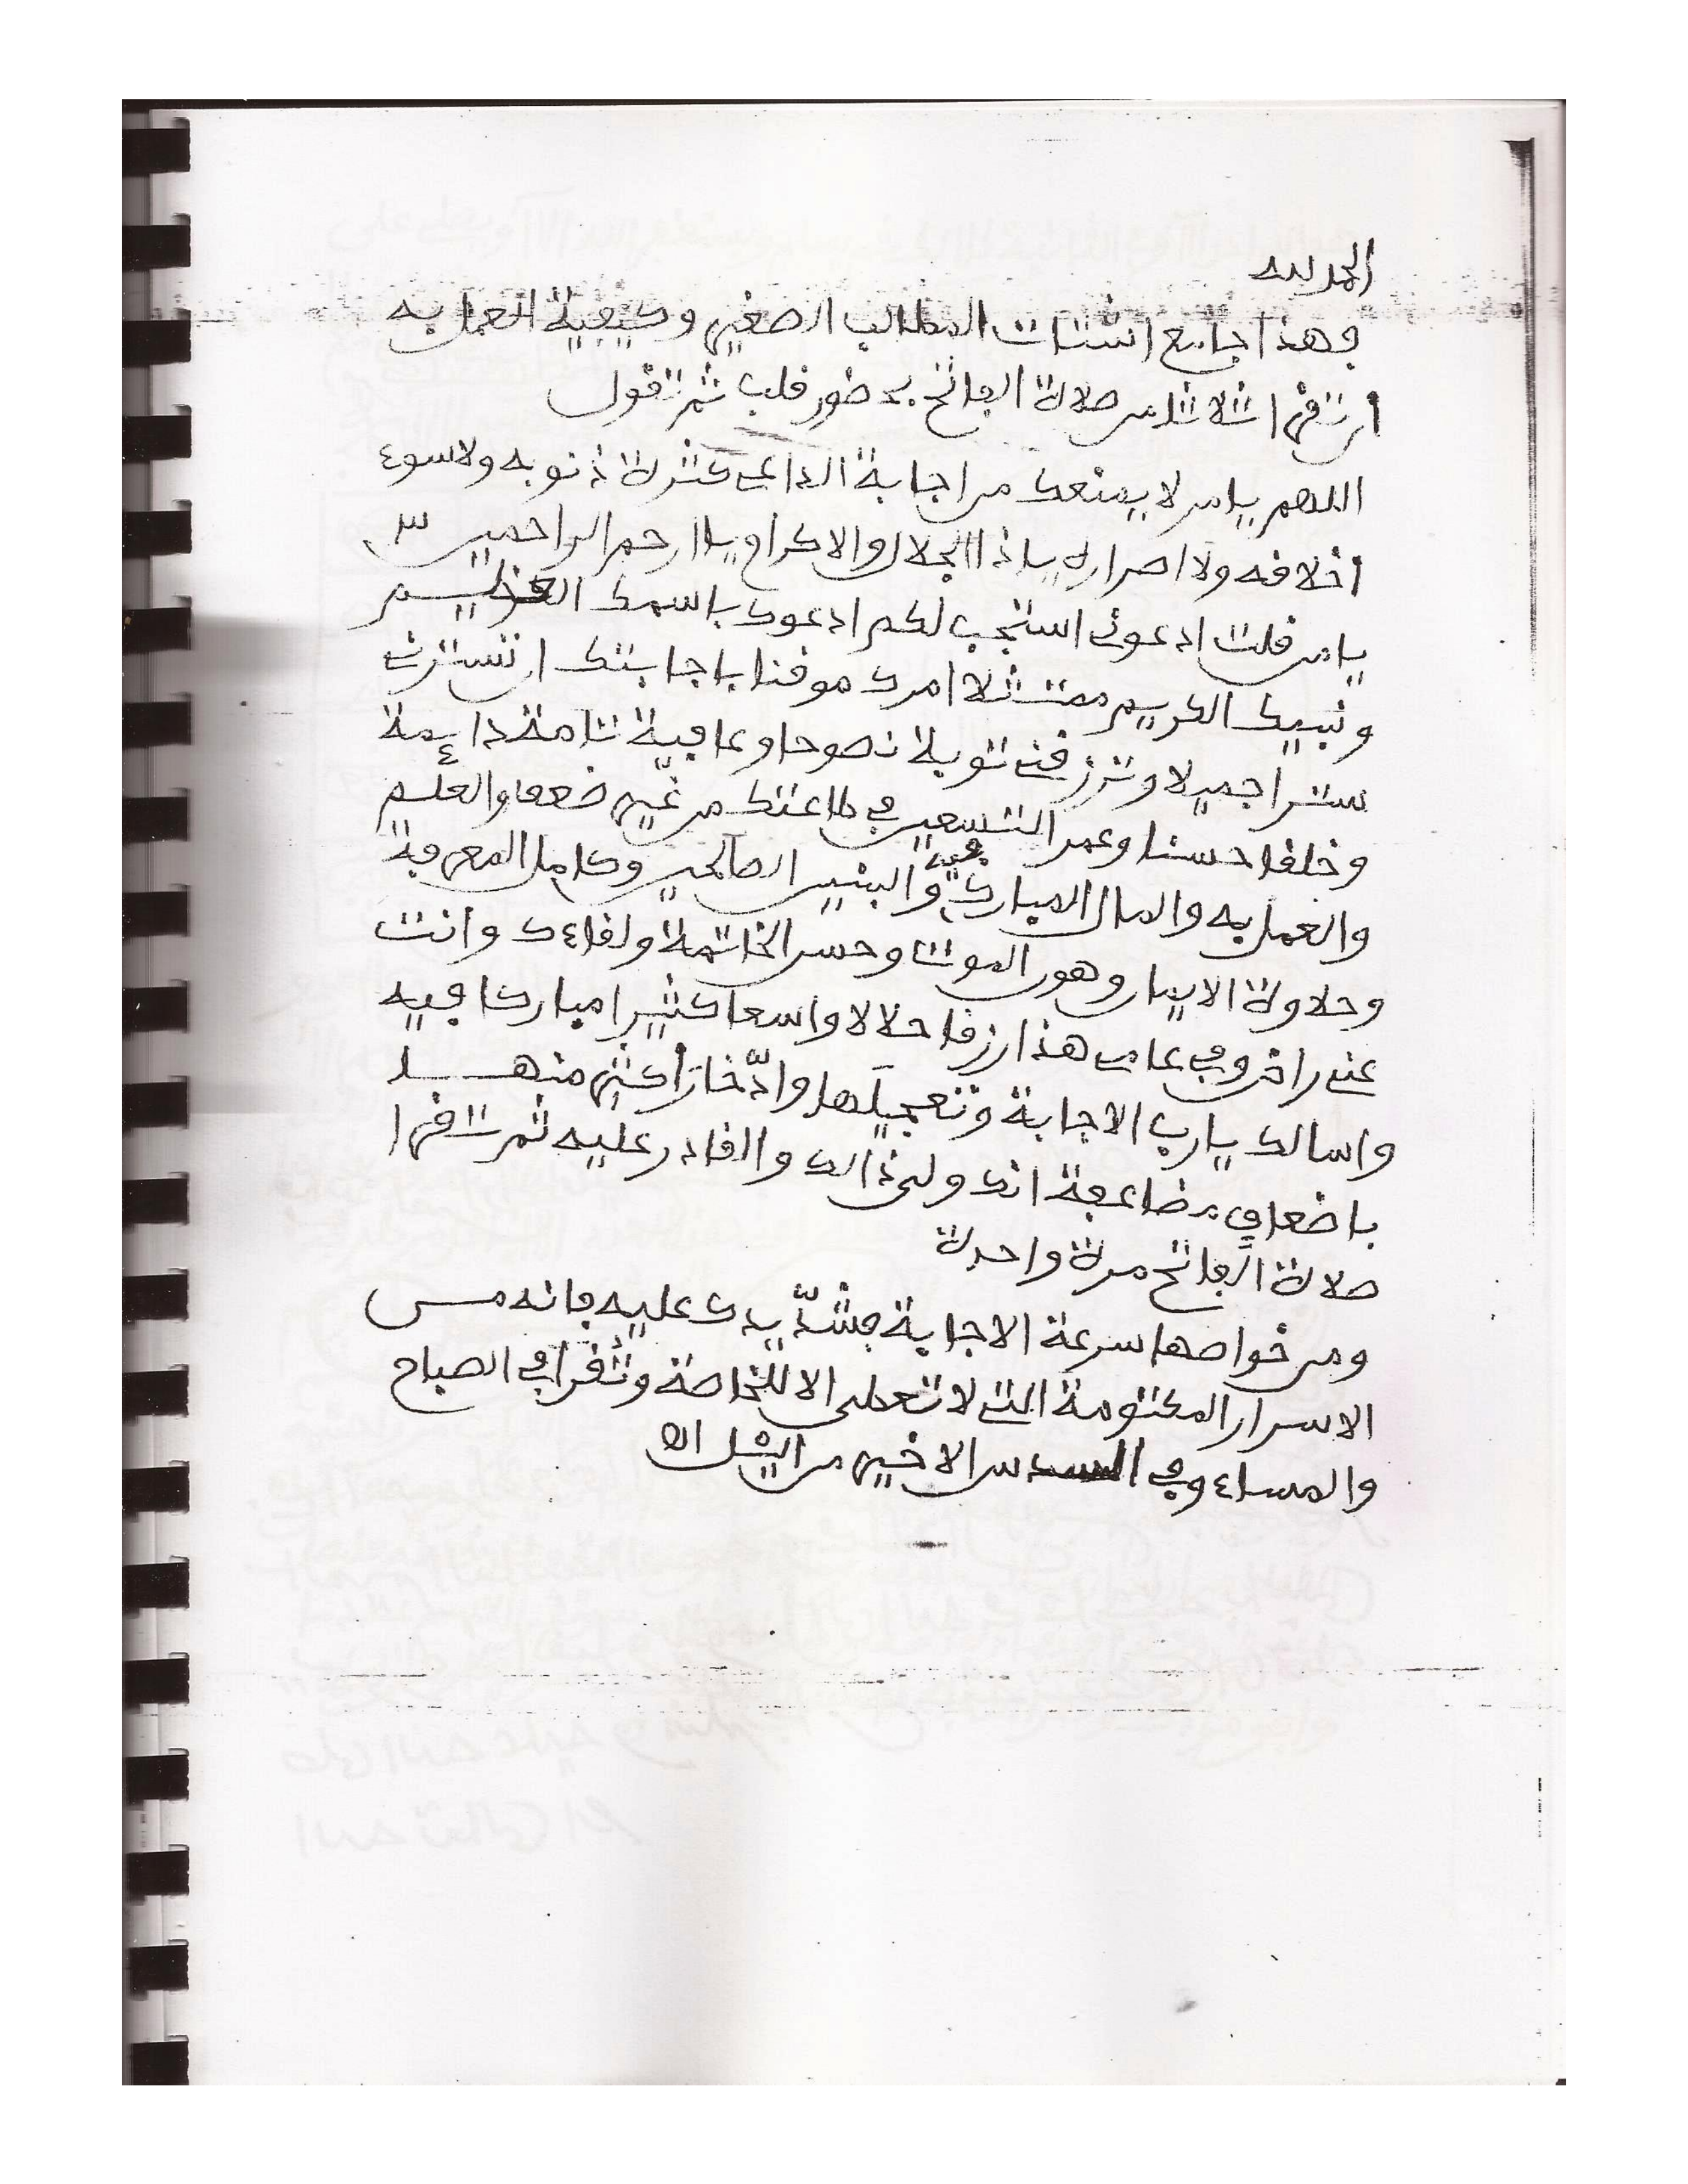 الحمد لله
فهذا جامع اشتات المطالب الصغير وكيفية العمل به
ان تقرا ثلاثا من صلاة الفاتح بحضور قلب ثم تقول
اللهم يا من لا يمنعك من اجابة الداعي كثرة ذنوبه ولا سوء
اخلاقه ولا اصراره يا ذا الجلال والاكرام يا ارحم الراحمين ٣
يا من قلت ادعوني استجب لكم ادعوك باسمك العظيم
ونبيك الكريم ممتثلا امرك موقنا باجابتك ان تسترني
سترا جميلا وترزقني توبة نصوحا وعافية تامة دايمة
وخلقا حسنا وعمر التسعين في طاعتك من غير ضعف والعلم
والعمل به والمال المبارك فيه والبنين الصالحين وكامل المعرفة
وحلاوة الايمان وهون الموت وحسن الخاتمة ولقاءك وانت
عني راض وفي عامي هذا رزقا حلالا واسعا كثيرا مباركا فيه
واسالك يا رب الاجابة وتعجيلها وادّخار أكثر منها
باضعاف مضاعفة انك ولي ذالك والقادر عليه ثم تقرا
صلاة الفاتح مرة واحدة
ومن خواصها سرعة الاجابة فشدّ يدك عليه فانه من
الاسرار المكتومة التي لا تعطى الا للخاصة وتقرأ في الصباح
والمساء وفي السدس الاخير من اليل اه